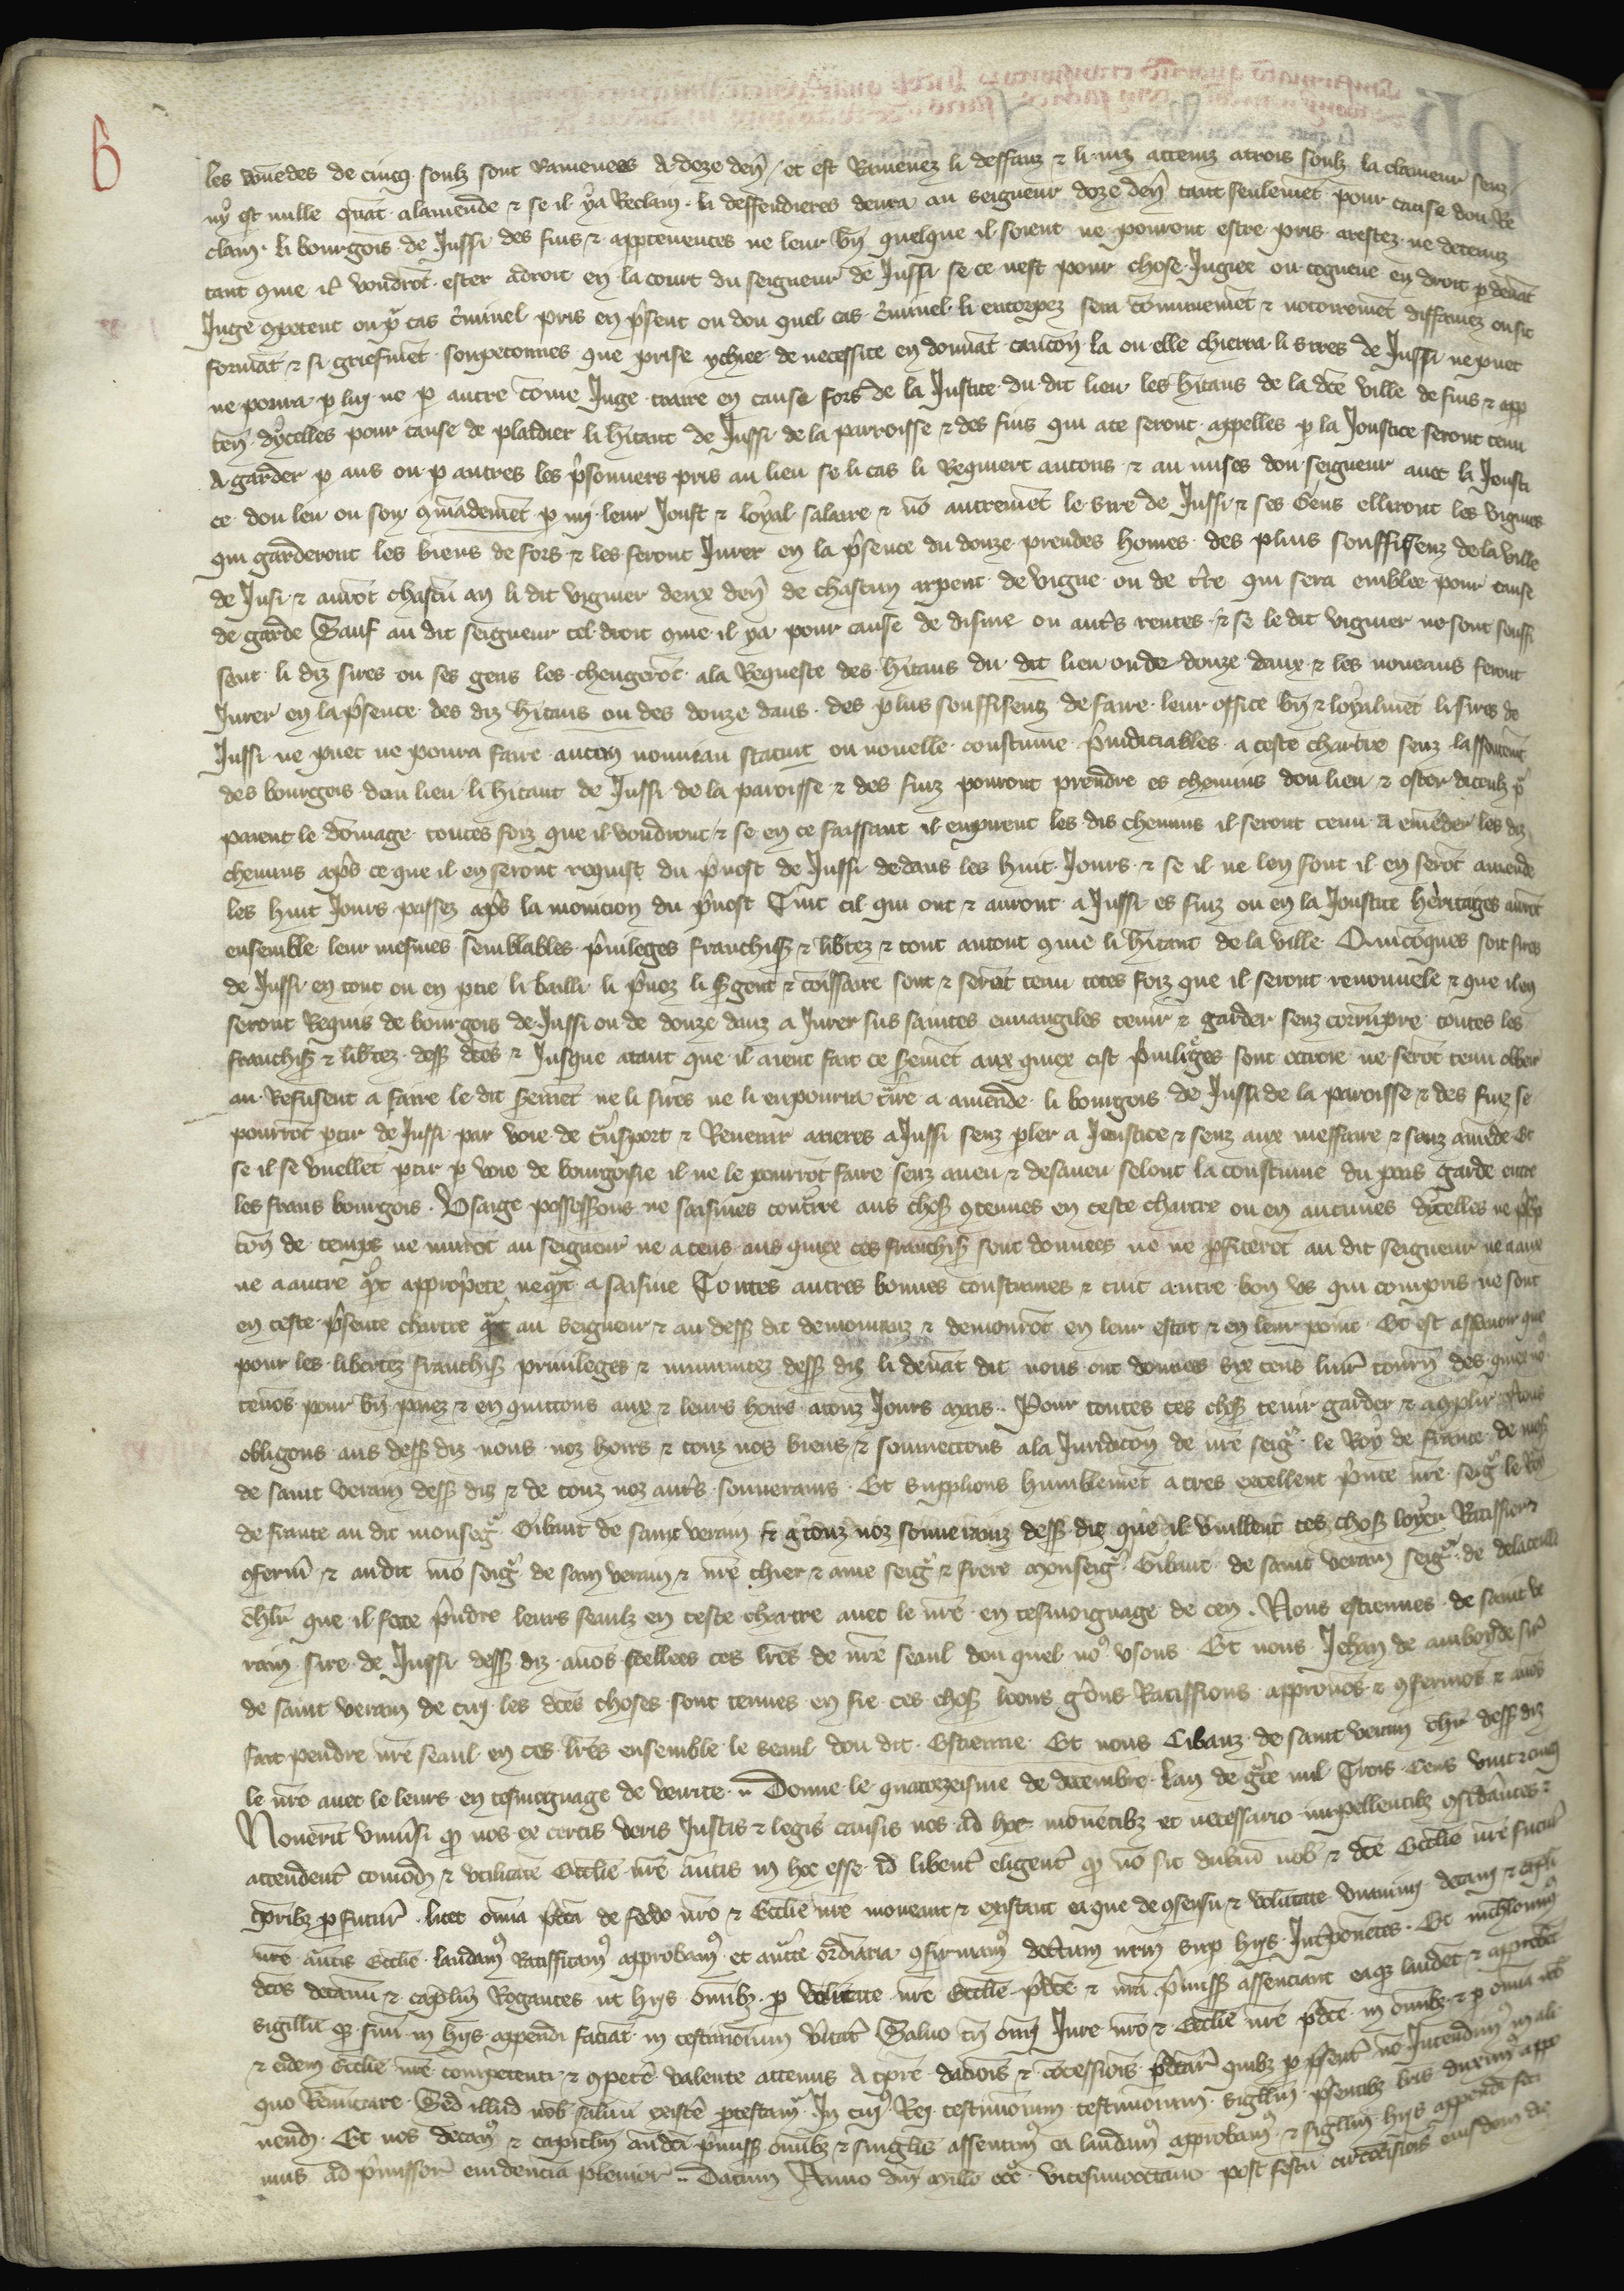 les amēdes de cincq soulz sont ramenees a doze deñ et est ramenez li deffauz & li niz attenuz a trois soulz la clameur senz
ny est nulle quāt a lamende & se il ya reclain li deffendieres deura au seigneur doze deñ tant seulemēt pour cause dou re
clain li bourgois de Jussi des fins & apptenences ne leur bñ quelque il soient ne pouront estre pris arestez ne detenuz
tant que il voudrōt ester adroit en la court du seigneur de Jussi se ce nest pour chose Jugiee ou cogneue en droit p deuāt
Juge 9petent ou p cas criminel pris en p̄sent ou dou quel cas criminel li encorpez sera cōmunemēt & notoiremēt diffamez ou si
formāt & si griefmēt soupeconnes que prise ychiee de necessite en donnāt caucōn la ou elle chierra li sires de Jussi ne puet
ne poura p luy ne p autre cōme Juge traire en cause fors de la Justice du dit lieu les hītans de la dc̄e ville de fins & app
teñ dycelles pour cause de plaidier li hītant de Jussi de la parroisse & des fins qui ace seront appelles p la Joustice seront tenu
a garder p aus ou p autres les p̄sonniers pris au lieu se li cas li requiert au couz & au mises dou seigneur auec la Jousti
ce dou leu ou son 9mādemēt p my leur Joust & loyal salaire & nō autremēt le sire de Jussi & ses gens elliront les vigniers
qui garderont les biens de fors & les feront Jurer en la p̄sence du douze preudes homes des plus souffissenz de la ville
de Jusi & aurōt chascū an li dit vignier deux deñ de chascun arpent de vigne ou de tr̄e qui sera emblee pour cause
de garde Sauf au dit seigneur tel droit que il ya pour cause de disme ou aut̄s rentes & se le dit vignier ne sont souffi
sent li diz sires ou ses gens les chengerōt a la requeste des hītans du dit lieu ou de douze daux & les noueaus feront
Jurer en la p̄sence des diz hītans ou des douze daus des plus souffisenz de faire leur office bñ & loyalmēt li sires de
Jussi ne puet ne poura faire aucun nouuiau statuit ou nouelle coustume p̄iudiciables a ceste chartre senz lassentemt
des bourgois dou lieu li hītant de Jussi de la paroisse & des finz pouront prendre es chemins dou lieu & oster dicculz p
paient le dōmage toutes foiz que il voudront & se en ce faissant il enpirent les dis chemins il seront tenu a emēder les diz
chemins ap̄s ce que il en seront requist du p̄uost de Jussi dedans les huit Jours & se il ne len font il en serōt amende
les huit Jours passez ap̄s la monicion du p̄uost Tuit cil qui ont & auront a Jussi es finz ou en la Joustice heritaiges aurōt
ensemble leur mesmes semblables p̄uileges franchis & lib̄tez & tout autout que li hītant de la ville Quicōques soit sires
de Jussi en tout ou en ptie li bailli li p̄uoz li sgent & cōissaire sont & serōt tenu totes foiz que il seront renouuele & que il en
seront requis de bourgois de Jussi ou de douze dauz a Jurer sus saintes euuangiles tenir & garder senz corrūpre toutes les
franchis & lib̄tez dess dc̄es & Jusque atant que il aient fait ce seremēt aux quiex cist p̄uileges sont octroie ne serōt tenu obeir
au refusent a faire le dit seremēt ne li sires ne li en pourra t̄ire a amende li bourgois de Jussi de la paroisse & des finz se
pourrōt ptir de Jussi par voie de t̄nsport & reuenir arieres a Jussi senz pler a Joustice & senz aux meffaire & sanz amēde Et
se il se vuellēt ptir p voie de bourgoisie il ne le pourrōt faire senz aueu & desaueu selonc la coustume du pais garde entre
les frans bourgois Vsaige possessions ne saisines cont̄re aus chos 9tenues en ceste chartre ou en aucunes dycelles ne p̄sp
ton de temps ne nurōt au seigneur ne a ceus aus quiex ces franchis sont donnees ne ne pfiterōt au dit seigneur ne a aux
ne a autre q̄t app̄priete ne q̄t a saisine Toutes autres bonnes coustumes & tuit autre bon vs qui compris ne sont
en ceste p̄sente chartre q̄t au seigneur & au dess dit demouriuz & demourōt en leur estat & en leur point Et est assauoir que
pour les libertez franchis priuileges & immunitez dess diz li deuāt dit nous ont donnes syx cens liur̄ tourñ des quiex no9
tenōs pour bñ paiez & en quittons aux & leurs hoirs a touz Jours mais Pour toutes ces chos tenir garder & a9plir
obligons aus dess diz nous noz hoirs & touz nos biens & soumectons a la Juridicōn de nr̄e seig̃ le Roy de France de mess
de saint veram dess diz & de touz noz aut̄s souuerains Et supplions humblemēt a tres excellent p̄nce nr̄e seig̃ le Roy
de france au dit monseig̃ Gibaut de saint veram & a touz noz souueranz dess diz que il vuillent ces chos loyer Ratiffier
9ferm̄ & au dit mō seig̃ de sain veram & nr̄e chier & ame seig̃ & frere monseig̃ Gibaut de saint veram seig̃ de delacelle
ch̄lr que il fece p̄ndre leurs seaulz en ceste chartre auec le nr̄e en tesmoignage de cen Nous estiennes de saint ve
rain sire de Jussi dess diz auōs seellees ces lr̄es de nr̄e seaul dou quel no9 vsons Et nous Jehan de amboyde sir̄
de saint veram de cuy les dc̄es choses sont tenues en fie ces chos loons g̃ons Ratiffions approuōs & 9fermōs & auōs
fait pendre nr̄e seaul en ces lr̄es ensemble le seaul dou dit Estienne Et nous Gibauz de saint veram ch̄lr dess diz
le nr̄e auec le leurs en tesmoignage de verite Donne le quatorzeisme de decembre Lan de g̃ce mil Trois Cens vint & cinq
Nouerit vniūsi q̄ nos ex certis veris Justis & legīs causis nos ad hoc mouētibz et necessario impellentibz 9sid̄antes &
attendent̄ comodū & vtilitatē Ecclīe nr̄e ān̄tis in hoc esse id libent̄ eligent̄ q̄ nō sit dubiū nob & dc̄e Ecclīe nr̄e futur̄
tp̄ribz pfutur̄ licet om̄ia p̄dc̄a de feodo nr̄o & Ecclīe nr̄e moueant & existant ea que de 9sensu & volūtate vnanimi decani & capl̄i
nr̄e ān̄tis Ecclīe laudam9 Ratifficam9 approbam9 et auc̄te ordīaria 9firmam9 dectum nr̄m sup hijs Int̄ponētes Et nichilomin9
dc̄os decanū & capl̄m Rogantes ut hijs om̄ibz p vtilitate nr̄e Ecclīe p̄dc̄e & nr̄a p̄miss assenciant eaq laudēt & approbēt
sigillū q̄ suū in hijs appendi faciāt in testimonium v̄itat̄ Saluo tn̄ om̄i Jure nr̄o & Ecclīe nr̄e p̄dc̄e in om̄ibz & p om̄ia nob
& eidem Ecclīe nr̄e competenti & 9petē valente actenus a tp̄re dacīois & cōcessiōis p̄dc̄ar̄ quibz p p̄sent̄ nō Intendim9 in ali
quo Renūciare Sed illud nob saluū existē p̄testam̄ In cui9 Rei testimonium testimonium sigillū p̄sentibz lr̄is duxim9 appo
nend Et nos decan9 & capitlm audc̄a p̄miss om̄ibz & singlīs assentim9 ea laudam9 approbam9 & sigillum hijs appendi feci
mus ad p̄missor̄ euidenciā pleniōr̄ Datum Anno dn̄i millo ccc̄ vicesimooctauo post festū circōcisiōis eiusdem die